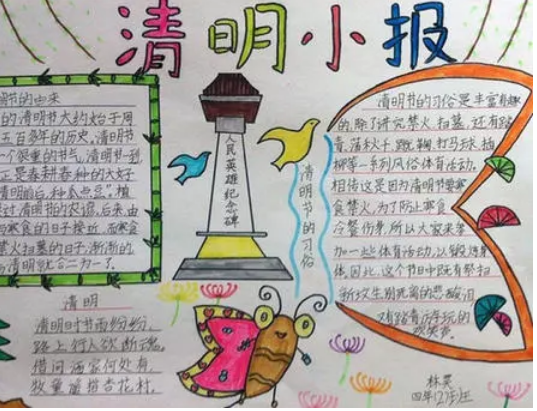 清明小报
明节的由来
的清明节大约始于周
五百多年的历史。清明节
个很重的节气,清明一到,
正是春耕春种的大好
清明前后,种瓜点豆"。植
过清明节的农谚。后来,由
与寒食的日子接近,而寒食
禁火扫墓的日子,渐渐的
与清明就合二为一了.
清明
清明时节雨纷纷,
路上行人欲断魂。
借问酒家何处有,
牧童遥指杏花村。
人民英雄纪念碑
清明节的习俗
清明节的习俗是丰富有趣
的,除了讲究禁火、扫墓,还有踏
青、荡秋千、蹴鞠、打马球、插
柳等一系列风俗体育活动。
相传这是因为清明节要寒
食禁火,为了防止寒食
冷餐伤身,所以大家来参
加一些体育活动,以锻炼身
体。因此,这个节日既有祭扫
新坟生别死离的悲酸泪
又有踏青游玩的
欢笑声。
林昊
四年(2)班